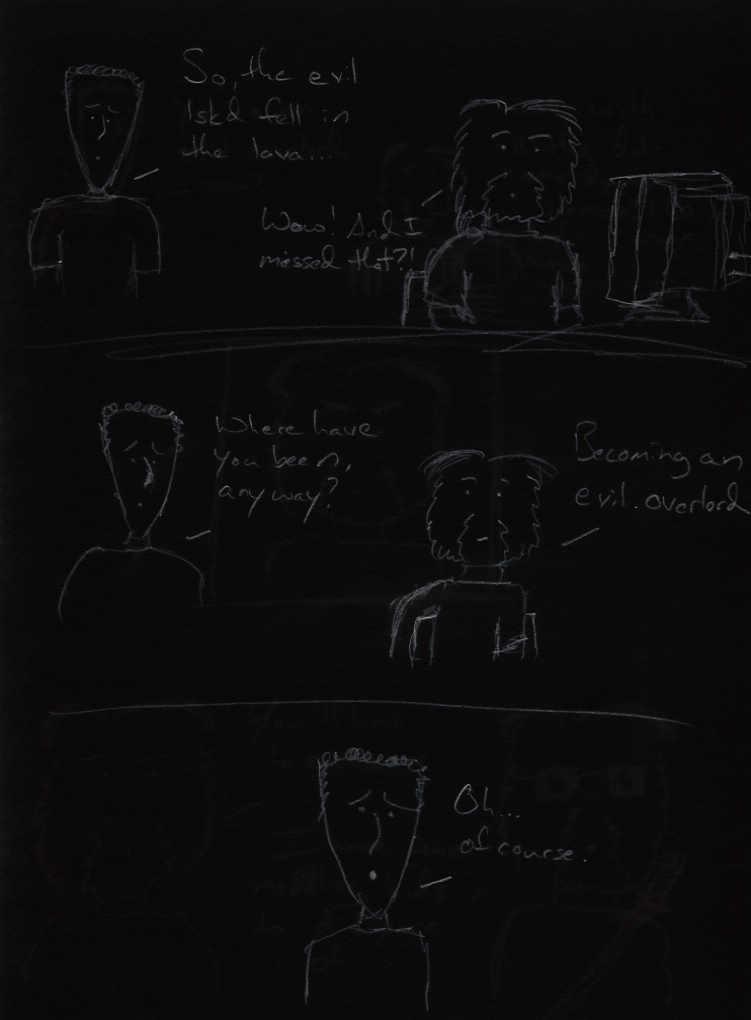 So, the evil
Iskd fell in
the lava...
Wow! And I
missed that?!
Where have
you been,
anyway?
Becoming an
evil overlord
Oh...
of course.